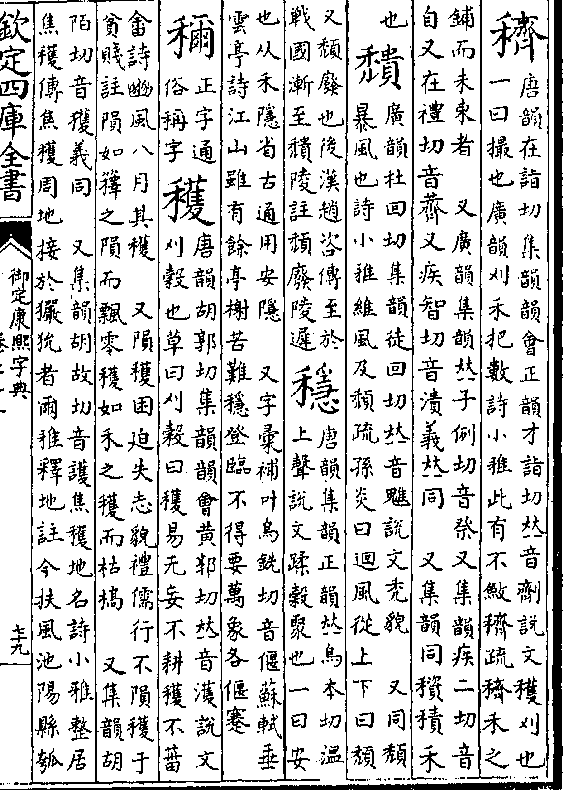 穧 唐韻在詣切集韻韻會正韻才詣切𠀤音劑說文穫刈也
一曰撮也廣韻刈禾把數詩小雅此有不斂穧疏穧禾之
鋪而未束者 又廣韻集韻𠀤子例切音祭又集韻疾二切音
自又在禮切音薺又疾智切音漬義𠀤同 又集韻同䅆積禾
也
穨 廣韻杜回切集韻徒回切𠀤音魋說文禿貌 又同頹
暴風也詩小雅維風及頹疏孫炎曰迴風從上下曰頹
又頹廢也後漢趙咨傳至於
戰國漸至穨陵註頹廢陵遲
穩 唐韻集韻正韻𠀤烏本切溫
上聲說文蹂穀聚也一曰安
也从禾隱省古通用安隱 又字彙補叶烏銑切音偃蘇軾垂
雲亭詩江山雖有餘亭榭苦難穩登臨不得要萬象各偃蹇
穪 正字通
俗稱字
穫 唐韻胡郭切集韻韻會黄郭切𠀤音濩說文
刈穀也草曰刈穀曰穫易无妄不耕穫不菑
畬詩豳風八月其穫 又隕穫困迫失志貌禮儒行不隕穫于
貧賤註隕如籜之隕而飄零穫如禾之穫而枯槁 又集韻胡
陌切音穫義同 又集韻胡故切音護焦穫地名詩小雅整居
焦穫傳焦穫周地接於玁狁者爾雅釋地註今扶風池陽縣瓠
欽定四庫全書
御定康熙字典